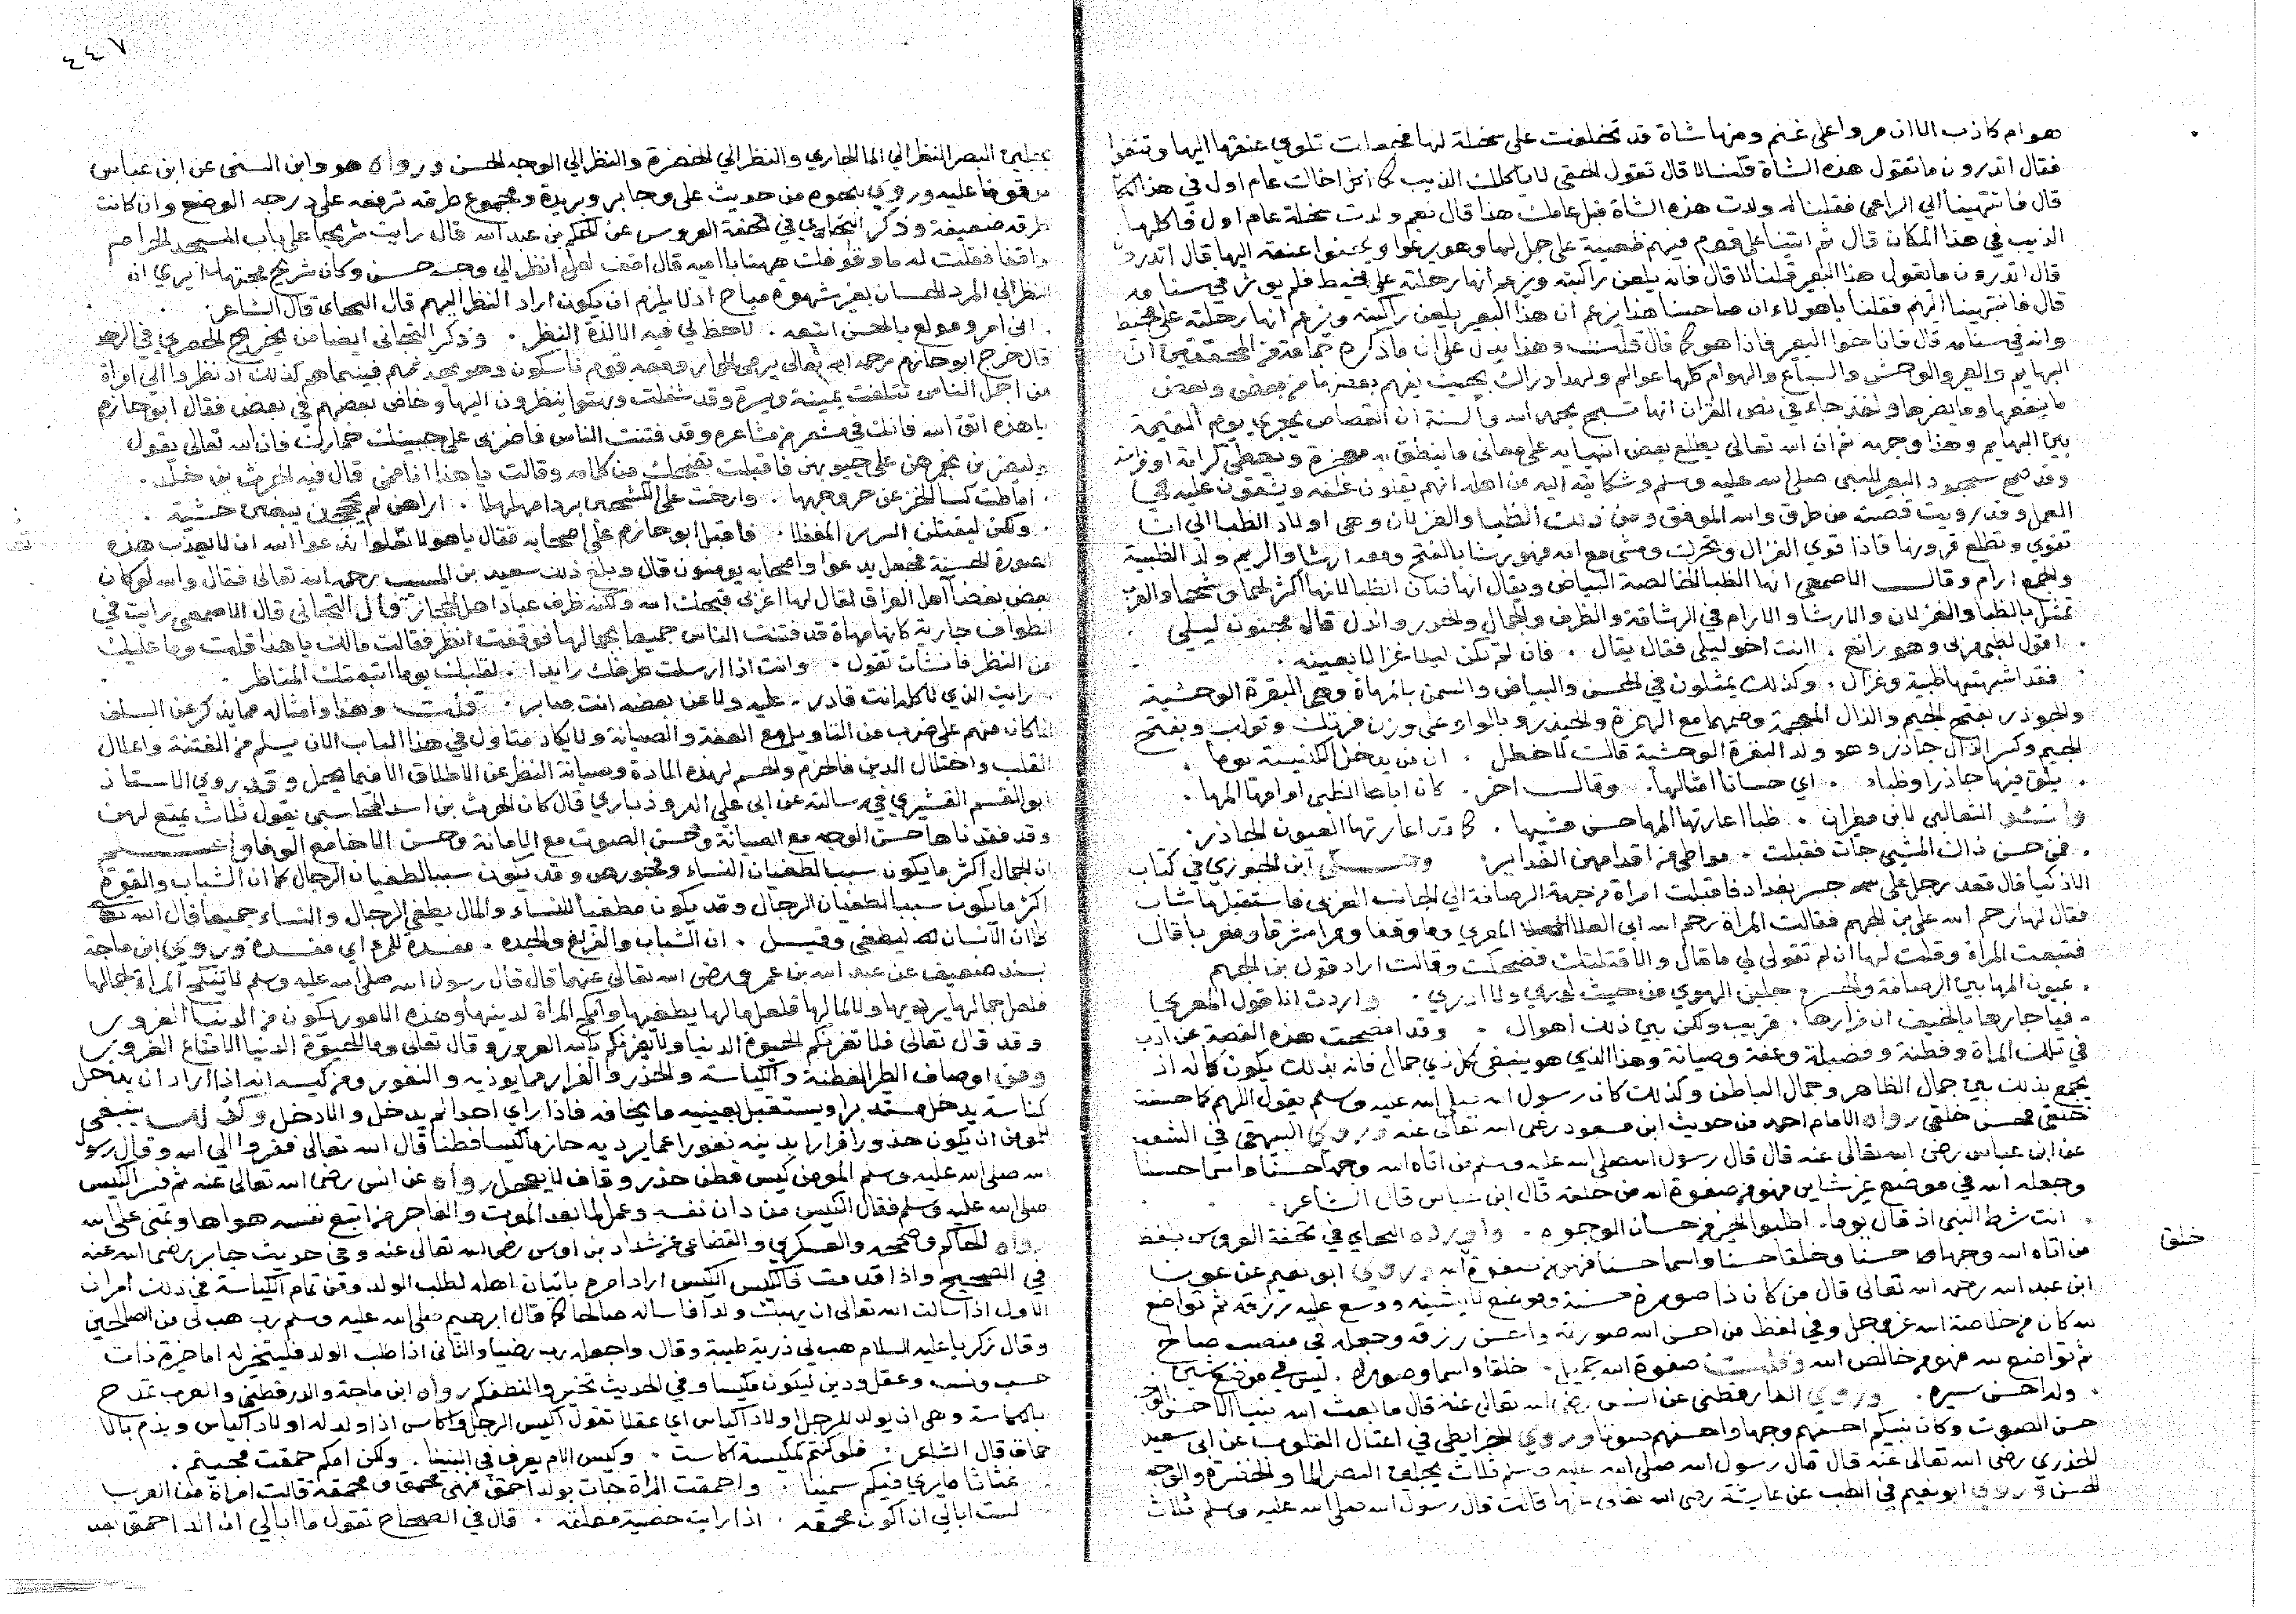 هوام كاذب الا ان مروا على غنم ومنها شاة قد تخلفت على سخلة لها فجعلت تلوي عنقها اليها وتثغوا
فقال اتدرون ما تقول هذه الشاة قلنا لا قال تقول الحقي لا ياكلك الذيب كما اكل اخاك عام اول في هذا المكان
قال فانتهينا الي الراعي فقلنا له ولدت هذه الشاة قبل عامك هذا قال نعم ولدت سخلة عام اول فاكلها
الذيب في هذا المكان قال ثم اتينا على قوم فيهم ظعينة على جمل لها وهو يرغوا ويحنوا عنقه اليها قال اتدرون
قال اتدرون ما يقول هذا البعير قلنا لا قال فانه يلعن راكبته ويزعم انها رحلته على مخيط فلم يوثر في سنامه
قال فانتهينا اليهم فقلنا ياهولاء ان صاحبنا هذا يزعم ان هذا البعير يلعن راكبته ويزعم انها رحلته على مخيط
وانه في سنامه قال فاناخوا البعير فاذا هو كما قال قلت وهذا يدل على ان ما ذكره جماعة من المحققين ان
البهايم والطير والوحش والسباع والهوام كلها عوالم ولها ادراك بحيث يفهم بعضها من بعض وبعض
ما ينفعها وما يضرها وقد جاء في نص القران انها تسبح بحمد الله والسنة ان القصاص يجري يوم القيمة
بين البهايم وهذا وجهه ثم ان الله تعالى يطلع بعض انبيايه على معاني ما ينطق به معجزة ويعطي كرامة او فراسة
وقد صح سجود البعير للنبي صلى الله عليه وسلم وشكايته اليه من اهله انهم يقلون علفه ويشقون عليه في
العمل وقد رويت قصته من طرق والله الموفق ومن ذلك الظبا والغزلان وهي اولاد الظبا الي ان
تقوي وتطلع قرونها فاذا قوي الغزال وتحرك ومشى مع امه فهو رشا بالفتح وجمعه ارشا والريم ولد الظبية
والجمع ارام وقال الاصمعي انها الظبا الخالصة البياض ويقال انها ضان الظبا لانها اكثر لحما وشحما والعرب
تمثل بالظبا والغزلان والارشا والارام في الرشاقة والظرف والجمال والحور والدل قال مجنون ليلى
اقول لظبي مر بي وهو راتع . اانت اخو ليلى فقال يقال . فان لم تكن ليلى غزالا بعينه .
فقد اشبهتها ظبية وغزال . وكذلك يمثلون في الحسن والبياض والسمن بالمهاة وهي البقرة الوحشية
والجوذر بفتح الجيم والذال المعجمة وضمهما مع الهمزة والجيذر وبالواو على وزن فرنك وتولب وبفتح
الجيم وكسر الذال جاذر وهو ولد البقرة الوحشية قالت الاخطل . ان من يدخل الكنيسة يوما .
يلق فيها جاذرا وظباء . اي حسانا امثالها . وقال اخر . كان اباها الظبي او امها المها .
وانشد الثعالبي لابن مطران . ظبا اعارتها المها حسن مشيها . كما قد اعارتها العيون الجاذر .
فمن حسن ذاك المشي جات فقبلت . مواطي من اقدامهن الغداير وحكى ابن الجوزي في كتاب
الاذكيا قال قعد رجل على جسر بغداد فاقبلت امراة من جهة الرصافة الي الجانب الغربي فاستقبلها شاب
فقال لها رحم الله علي بن الجهم فقالت المراة رحم الله ابي العلا المعري وما وقفا ومرا مشرقا ومغربا قال
فتبعت المراة وقلت لها ان لم تقولي لي ما قال والا قتلتك فضحكت وقالت اراد قول بن الجهم
عيون المها بين الرصافة والجسر . جلبن الهوي من حيث ادري ولا ادري . واردت انا قول المعري
فيا دارها بالخيف ان مزارها . قريب ولكن بين ذلك اهوال . وقد افصحت هذه القصة عن ادب
في تلك المراة وفطنة وفضيلة وعفة وصيانة وهذا الذي هو ينبغي لكل ذي جمال فانه بذلك يكون كماله اذ
يجمع بذلك بين جمال الظاهر وجمال الباطن وكذلك كان رسول الله صلى الله عليه وسلم يقول اللهم كما حسنت
خلقي فحسن خلقي رواه الامام احمد من حديث ابن مسعود رضي الله تعالى عنه وروي البيهقي في الشعب
عن ابن عباس رضي الله تعالى عنه قال قال رسول الله صلى الله عليه وسلم من اتاه الله وجها حسنا واسما حسنا
وجعله الله في موضع غير شاين فهو من صفوة الله من خلقه قال ابن عباس قال الشاعر .
انت شرط النبي اذ قال يوما . اطلبوا الخير من حسان الوجوه . واورده التجاني في تحفة العروس بلفظ
من اتاه الله وجها حسنا وخلقا حسنا واسما حسنا فهو من صفوة الله وروي ابو نعيم عن عون
خلق
ابن عبد الله رحمه الله تعالى قال من كان ذا صورة حسنة وموضع لا يشينه ووسع عليه رزقه ثم تواضع
لله كان من خالصة الله عز وجل وفي لفظ من احسن الله صورته واحسن رزقه وجعله في منصب صالح
ثم تواضع لله فهو من خالص الله وقلت صفوة الله جميل . خلقا واسما وصوره . ليس في موضع شين
وله احسن سيره . وروي الدارقطني عن انس رضي الله تعالى عنه قال ما بعث الله نبيا الا حسن الوجه
حسن الصوت وكان نبيكم احسنهم وجها واحسنهم صوتا وروي الخرايطي في اعتلال القلوب عن ابي سعيد
الخدري رضي الله تعالى عنه قال قال رسول الله صلى الله عليه وسلم ثلاث يجلين البصر الما والخضرة والوجه
الحسن وروي ابو نعيم في الطب عن عايشة رضي الله تعالى عنها قالت قال رسول الله صلى الله عليه وسلم ثلاث
٤٤٧
يجلين البصر النظر الي الما الجاري والنظر الي الخضرة والنظر الي الوجه الحسن ورواه هو وابن السني عن ابن عباس
موقوفا عليه وروي نحوه من حديث علي وجابر وبريدة ومجموع طرقه ترفعه على درجه الوضع وان كانت
طرقه ضعيفة وذكر التجاني في تحفة العروس عن الحكم بن عبد الله قال رايت شريحا على باب المسجد الحرام
واقفا فقلت له ما وقوفك ههنا يابا اميه قال اقف لعلي انظر الي وجه حسن وكان شريح مجتهدا يري ان
النظر الي المرد الحسان بغير شهوة مباح اذ لا يلزم ان يكون اراد النظر اليهم قال التجاني قال الشاعر
اني امرو مولع بالحسن اتبعه . لاحظ لي فيه الا لذة النظر . وذكر التجاني ايضا من تخريج الحصري في الزهر
قال خرج ابو حازم رحمه الله تعالى يرمي الجمار ومعه قوم ناسكون وهو يحدثهم فبينما هو كذلك اذ نظروا الي امراة
من اجمل الناس تتلفت يمينة ويسرة وقد شغلت وبهتوا ينظرون اليها وخاض بعضهم في بعض فقال ابو حازم
يا هذه اتق الله فانك في مشعر من مشاعره وقد فتنت الناس فاضربي على جيبك خمارك فان الله تعالى يقول
وليضربن بخمرهن على جيوبهن فاقبلت تضحك من كلامه وقالت يا هذا انا ممن قال فيه الحرث بن خالد .
اماطت كسا الخز عن حر وجهها . وارخت على الكشحين بردا مهلهلا . من اللاي لم يحججن يبغين حسبة .
ولكن ليقتلن البري المغفلا . فاقبل ابو حازم على اصحابه فقال ياهولا تعالوا ندعوا الله ان لا يعذب هذه
الصورة الحسنة فجعل يدعوا واصحابه يومنون قال وبلغ ذلك سعيد بن المسيب رحمه الله تعالى فقال والله لو كان
بعض بغضا اهل العراق لقال لها اغربي قبحك الله ولكنه ظرف عباد اهل الحجاز قال التجاني قال الاصمعي رايت في
الطواف جارية كانها مهاة قد فتنت الناس جميعا بجمالها فوقفت انظر فقالت مالك يا هذا قلت وما عليك
من النظر فانشات تقول . وانت اذا ارسلت طرفك رايدا . لقلبك يوما اتعبتك المناظر .
رايت الذي لا كله انت قادر . عليه ولا عن بعضه انت صابر . قلت وهذا وامثاله مما يذكر عن السلف
انما كان منهم على ضرب من التاويل مع العفة والصيانة ولا يكاد متاول في هذا الباب الان يسلم من الفتنة واعلال
القلب واختلال الدين فالحزم والحسم لهذه المادة وصيانة النظر عن الاطلاق الا فيما يحل وقد روي الاستاذ
ابو القسم القشيري في رسالته عن ابي علي الروذباري قال كان الحرث بن اسد المحاسبي يقول ثلاث يمتع لهن
وقد فقدناها حسن الوجه مع الصيانة وحسن الصوت مع الامانة وحسن الاخا مع الوفا واعلم
ان الجمال اكثر ما يكون سببا لطغيان النساء وفجورهن وقد يكون سببا لطغيان الرجال كما ان الشباب والقوة
اكثر ما يكون سببا لطغيان الرجال وقد يكون مطغيا للنساء والمال يطغي الرجال والنساء جميعا قال الله تعالى
كلا ان الانسان ليطغى وقيل . ان الشباب والفراغ والجده . مفسدة للمرء اي مفسده وروي ابن ماجة
بسند ضعيف عن عبد الله بن عمرو رضي الله تعالى عنهما قال قال رسول الله صلى الله عليه وسلم لا تنكح المراة لجمالها
فلعل جمالها يرديها ولا لمالها فلعل مالها يطغيها وانكح المراة لدينها وهذه الامور تكون من الدنيا الغرور
وقد قال تعالى فلا تغرنكم الحيوة الدنيا ولا يغرنكم بالله الغرور وقال تعالى وما الحيوة الدنيا الا متاع الغرور
ومن اوصاف الطير الفطنة والكياسة والحذر والفرار مما يوذيه والنفور ومن كيسه انه اذا اراد ان يدخل
كناسه يدخل مستدبرا ويستقبل بعينيه ما يخافه فاذا راي احدا لم يدخل والا دخل وكذلك ينبغي
للمومن ان يكون حذورا فرارا بدينه نفورا عما يرديه حازما كيسا فطنا قال الله تعالى ففروا الي الله وقال رسول
الله صلى الله عليه وسلم المومن كيس فطن حذر وقاف لا يعجل رواه عن انس رضي الله تعالى عنه ثم فسر الكيس
صلى الله عليه وسلم فقال الكيس من دان نفسه وعمل لما بعد الموت والعاجز من اتبع نفسه هواها وتمنى على الله
رواه الحاكم وصححه والعسكري والقضاعي عن شداد بن اوس رضي الله تعالى عنه وفي حديث جابر رضي الله عنه
في الصحيح واذا قدمت فالكيس الكيس اراد امره باتيان اهله لطلب الولد ومن تمام الكياسة في ذلك امران
الاول اذا سالت الله تعالى ان يهبك ولدا فاساله صالحا كما قال ابرهيم صلى الله عليه وسلم رب هب لي من الصالحين
وقال زكريا عليه السلام هب لي ذرية طيبة وقال واجعله رب رضيا والثاني اذا طلب الولد فليتخير له امراة ذات
حسب ونسب وعقل ودين ليكون مكيسا وفي الحديث تخيروا لنطفكم رواه ابن ماجة والدارقطني والعرب تمدح
بالكياسة وهي ان يولد للرجل اولاد اكياس اي عقلا تقول اكيس الرجل واكاس اذا ولد له اولاد اكياس ويذم بالا
حماق قال الشاعر : فلو كنتم لمكيسة اكاست . وكيس الام يعرف في البنينا . ولكن امكم حمقت فجيتم .
غثاثا ما نري فيكم سمينا . واحمقت المراة جات بولد احمق فهي محمق ومحمقة قالت امراة من العرب
لست ابالي ان اكون محمقه . اذا رايت خصية معلقه . قال في الصحاح تقول ما ابالي ان الد احمق بعد